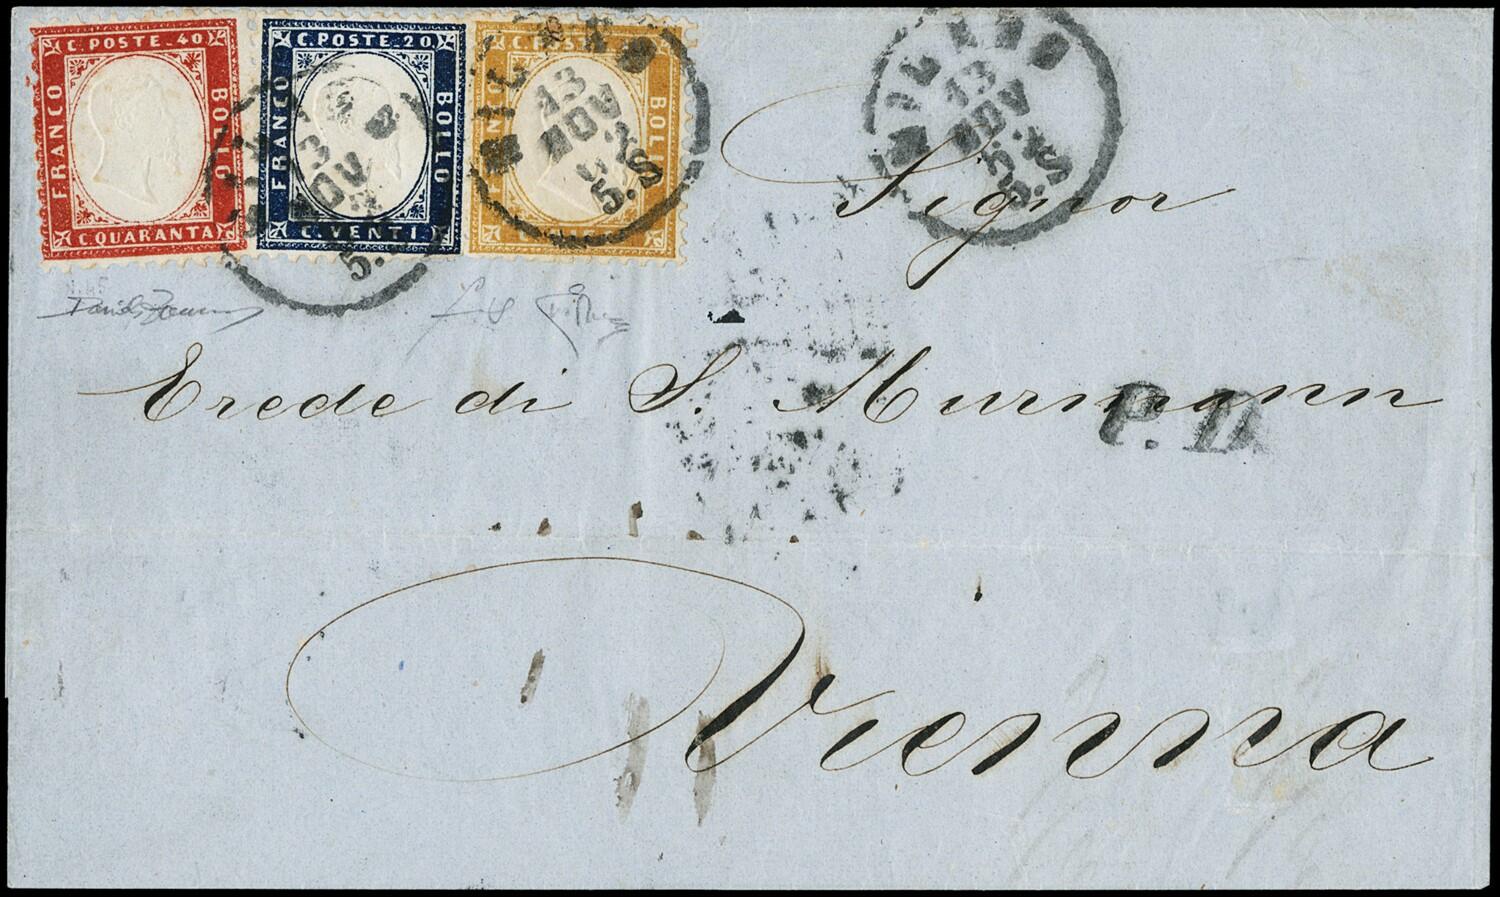 C. POSTE. 40
FRANCO
BOLLO
C. QUARANTA
C. POSTE. 20
FRANCO
BOLLO
C. VENTI
C. POSTE
FRANCO
BOLLO
MILANO
13
NOV
5.S
MILANO
13
NOV
5.S
Signor
Erede di S. Murmann
P.D.
Vienna